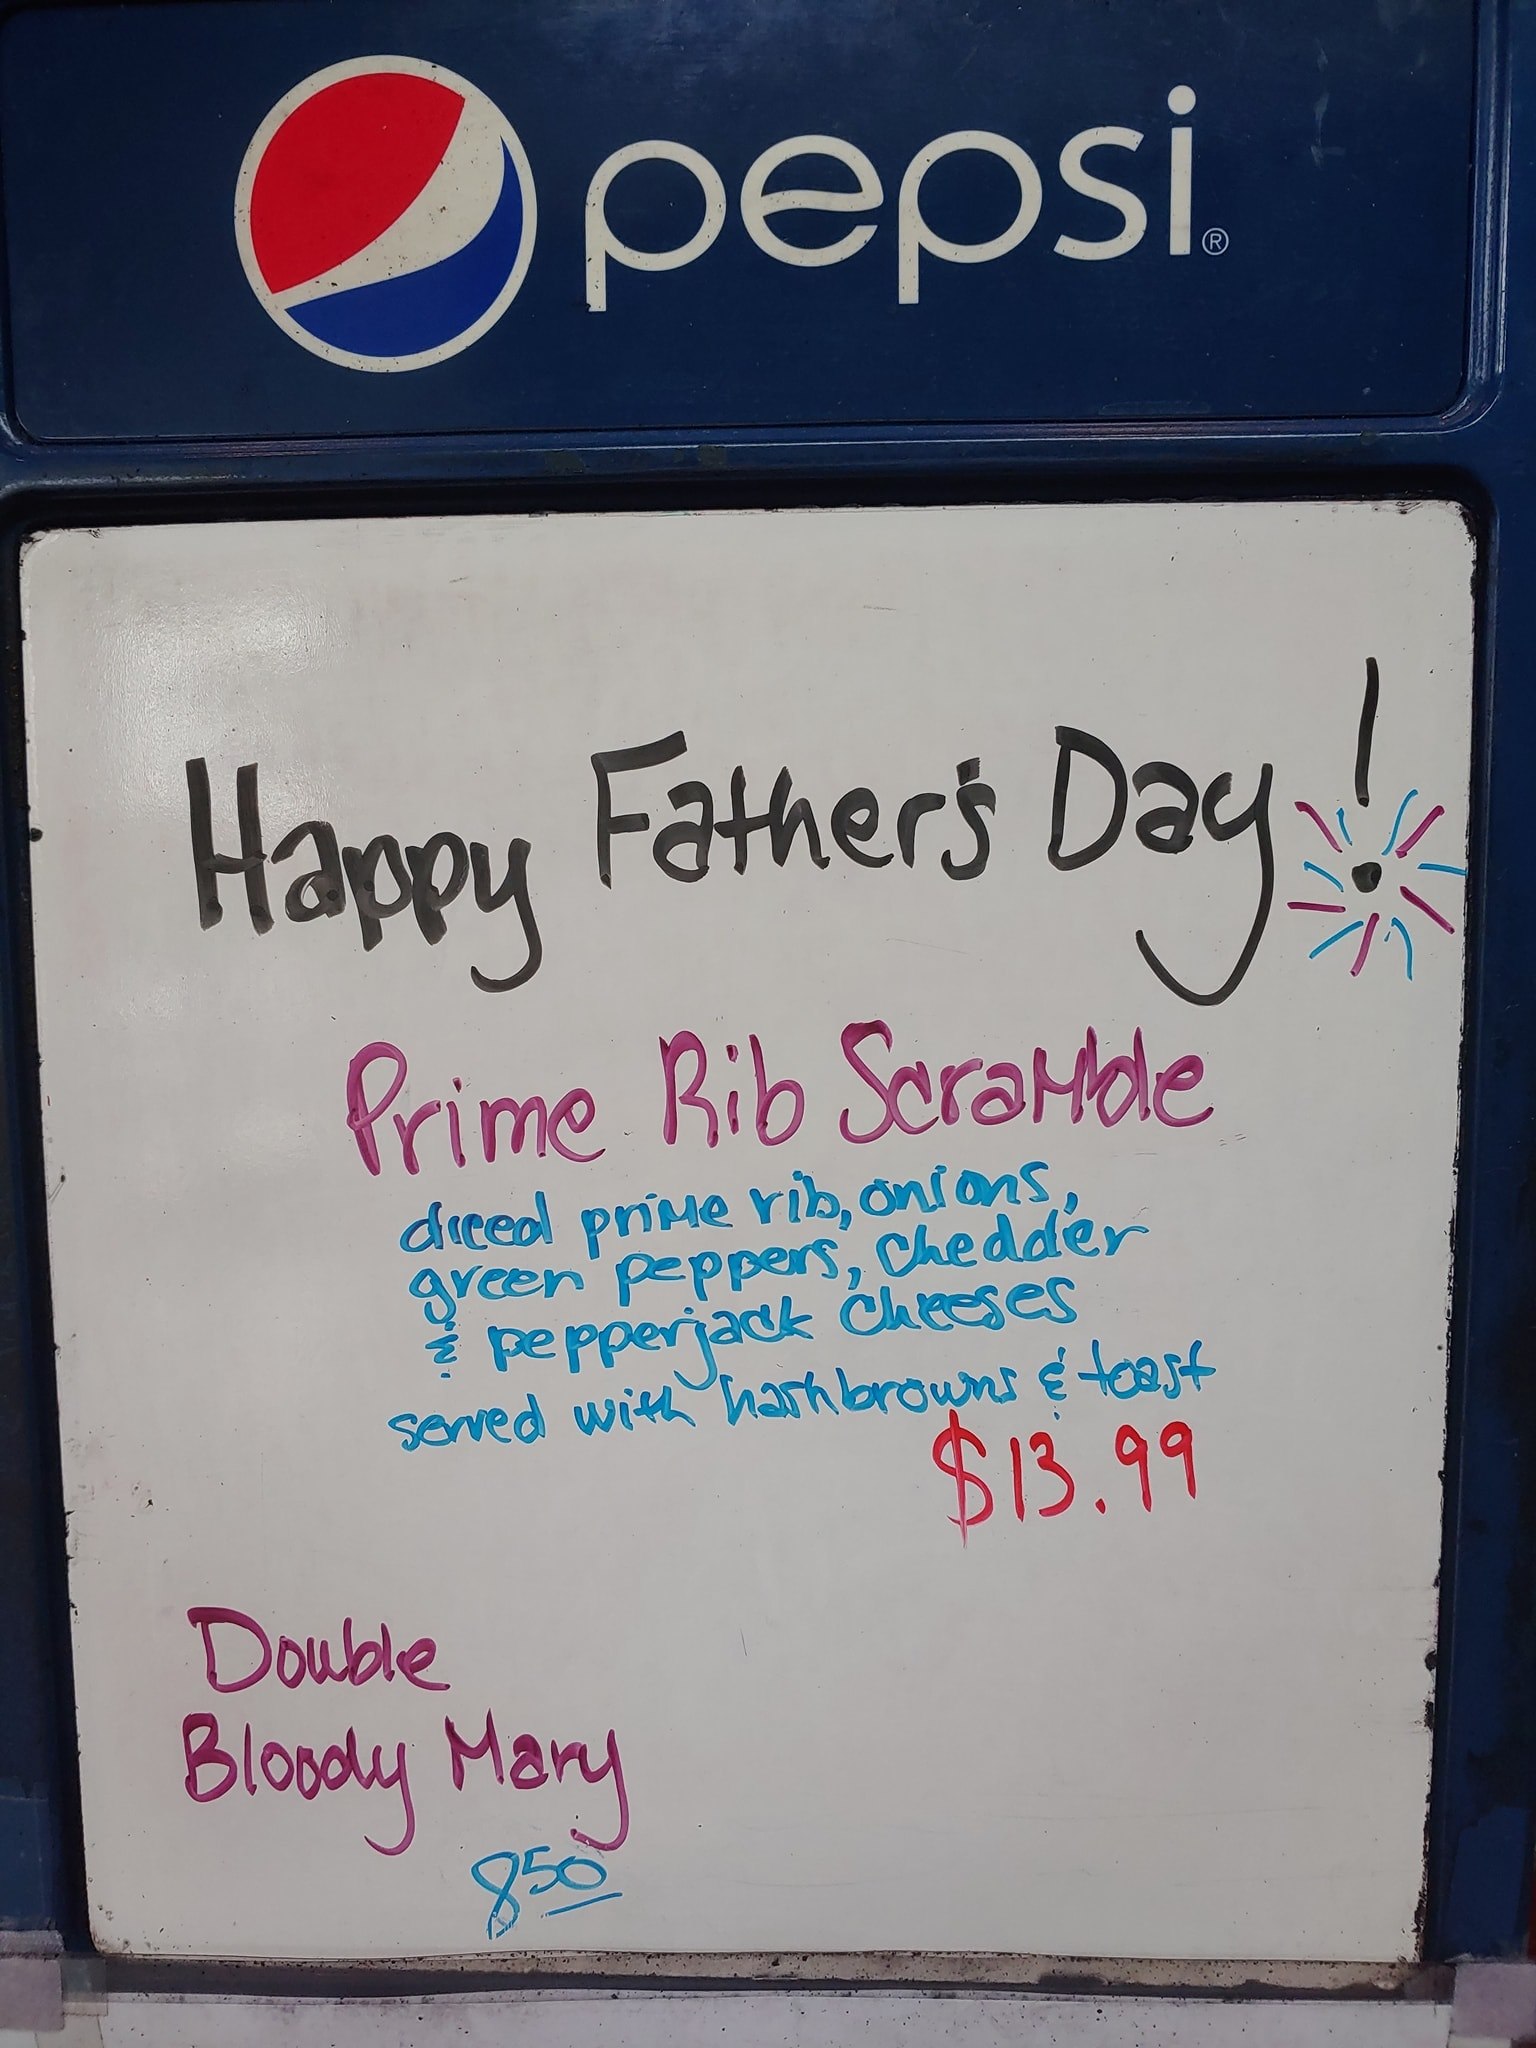 pepsi®
Happy Father's Day!
Prime Rib Scramble
diced prime rib, onions,
green peppers, chedder
& pepperjack cheeses
served with hashbrowns & toast
$13.99
Double
Bloody Mary
850